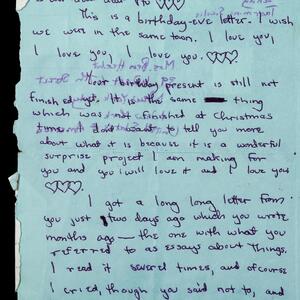 This is a birthday-eve letter. I wish
we were in the same town. I love you,
I love you, I love you. ♡♡♡
Your birthday present is still not
finished yet. It is the same thing
which was not finished at Christmas
time. I don't want to tell you more
about what it is because it is a wonderful
surprise project I am making for
you and you will love it and I love you
♡♡♡
I got a long long letter from
you just two days ago which you wrote
months ago — the one with what you
referred to as essays about things.
I read it several times, and of course
I cried, though you said not to, and